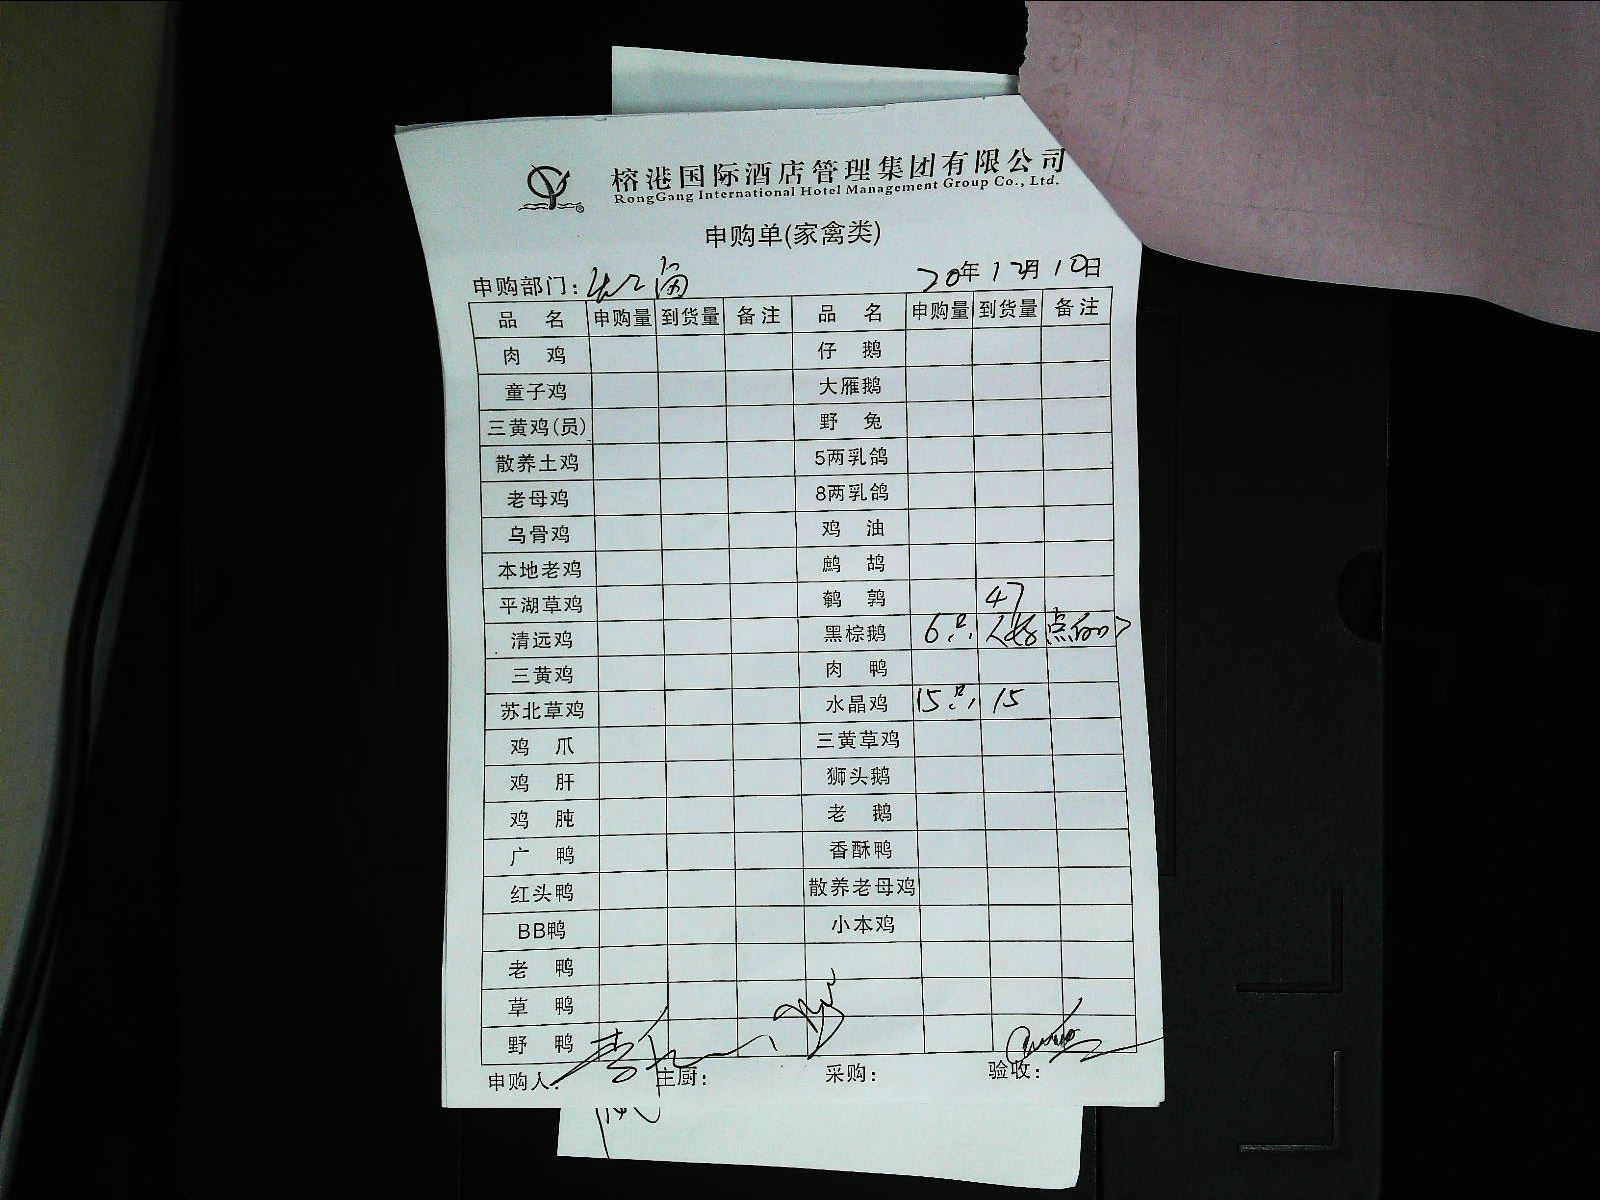 榕港国际酒店管理集团有限公司
RongGang International Hotel Management Group Co., Ltd.
申购单(家禽类)
申购部门: 20年12月10日
品名 申购量 到货量 备注 品名 申购量 到货量 备注
肉鸡 仔鹅
童子鸡 大雁鹅
三黄鸡(员) 野兔
散养土鸡 5两乳鸽
老母鸡 8两乳鸽
乌骨鸡 鸡油
本地老鸡 鹧鸪
平湖草鸡 鹌鹑 47
清远鸡 黑棕鹅 6只 <好点的>
三黄鸡 肉鸭
苏北草鸡 水晶鸡 15只 15
鸡爪 三黄草鸡
鸡肝 狮头鹅
鸡肫 老鹅
广鸭 香酥鸭
红头鸭 散养老母鸡
BB鸭 小本鸡
老鸭
草鸭
野鸭
申购人: 主厨: 采购: 验收: